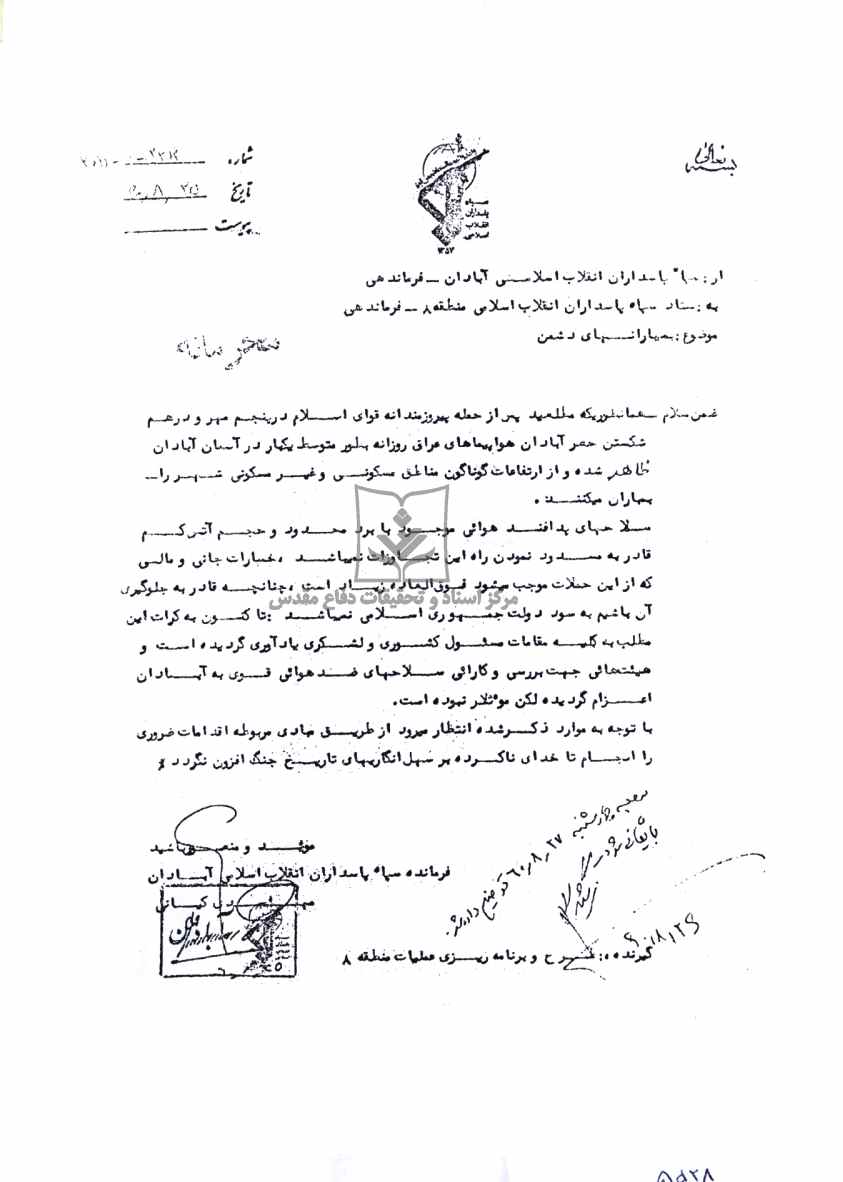 بسمه تعالی
شماره
تاریخ ۲۵ ر ۸ ر ۶۰
پیوست
سپاه
پاسداران
انقلاب
اسلامی
۱۳۵۷
از : سپاه پاسداران انقلاب اسلامی آبادان ــ فرماندهی
به : ستاد سپاه پاسداران انقلاب اسلامی منطقه ۸ ــ فرماندهی
موضوع : بمبارانهای دشمن
محرمانه
ضمن سلام همانطوریکه مطلعید پس از حمله پیروزمندانه قوای اسلام در پنجم مهر و درهم
شکستن حصر آبادان هواپیماهای عراق روزانه بطور متوسط یکبار در آسمان آبادان
ظاهر شده و از ارتفاعات گوناگون مناطق مسکونی و غیر مسکونی شهر را ــ
بمباران میکنند .
سلاحهای پدافند هوائی موجود با برد محدود و حجم آتش کم
قادر به مسدود نمودن راه این تجاوزات نمیباشد ، خسارات جانی و مالی
که از این حملات موجب میشود فوق‌العاده زیاد است ، چنانچه قادر به جلوگیری
آن باشیم به سود دولت جمهوری اسلامی نمیباشد : تا کنون به کرات این
مطلب به کلیه مقامات مسئول کشوری و لشکری یادآوری گردیده است و
هیئتهائی جهت بررسی و کارائی سلاحهای ضد هوائی قوی به آبادان
اعزام گردیده لکن موثثر نبوده است .
با توجه به موارد ذکر شده انتظار میرود از طریق مبادی مربوطه اقدامات ضروری
را انجام تا خدای ناکرده بر سهل انگاریهای تاریخ جنگ افزون نگردد
مرکز اسناد و تحقیقات دفاع مقدس
موئید و منصور باشید
فرمانده سپاه پاسداران انقلاب اسلامی آبادان
کیانی
۶۰ر۸ر۲۷
بایگانی شود
۶۰ر۸ر۲۶
گیرنده : طرح و برنامه ریزی عملیات منطقه ۸